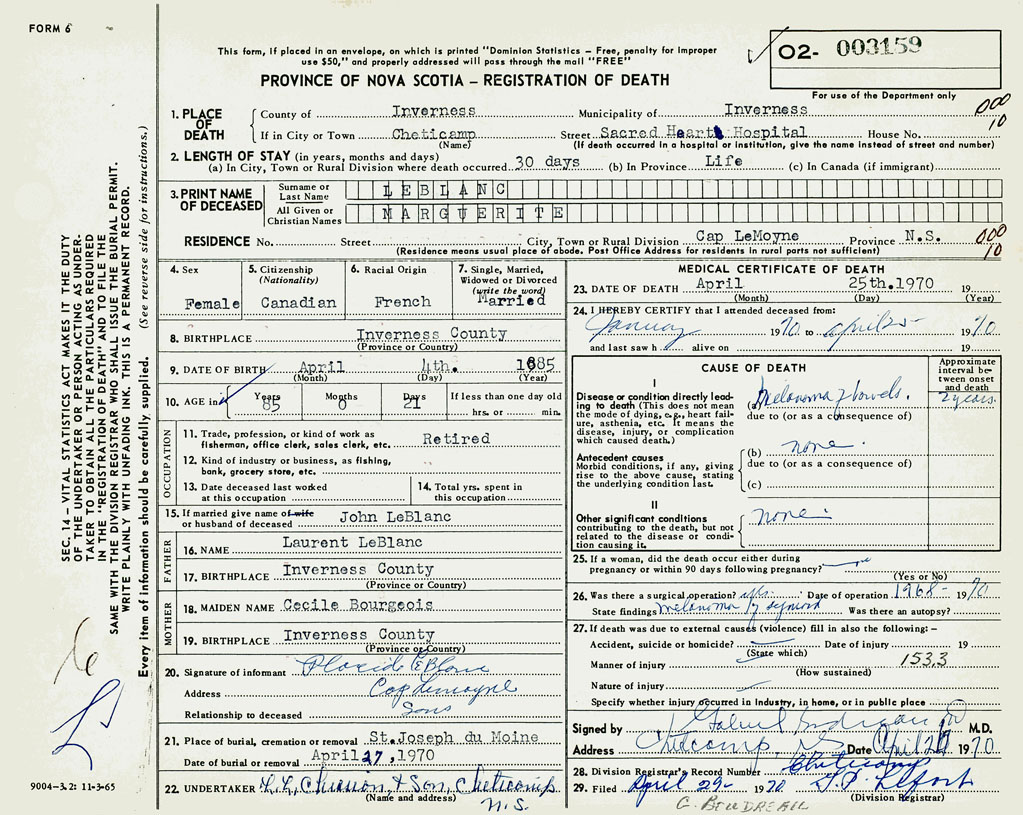 FORM 6
This form, if placed in an envelope, on which is printed "Dominion Statistics – Free, penalty for improper
use $50," and properly addressed will pass through the mail "FREE"
02- 003159
PROVINCE OF NOVA SCOTIA – REGISTRATION OF DEATH
For use of the Department only
1. PLACE OF DEATH
County of Inverness Municipality of Inverness
000
10
If in City or Town Cheticamp Street Sacred Heart Hospital House No.
(Name) (If death occurred in a hospital or institution, give the name instead of street and number)
2. LENGTH OF STAY (in years, months and days)
(a) In City, Town or Rural Division where death occurred 30 days (b) In Province Life (c) In Canada (if immigrant)
3. PRINT NAME OF DECEASED
Surname or Last Name LEBLANC
All Given or Christian Names MARGUERITE
RESIDENCE No. Street City, Town or Rural Division Cap LeMoyne Province N.S.
000
10
(Residence means usual place of abode. Post Office Address for residents in rural parts not sufficient)
4. Sex
Female
5. Citizenship
(Nationality)
Canadian
6. Racial Origin
French
7. Single, Married,
Widowed or Divorced
(write the word)
Married
8. BIRTHPLACE Inverness County
(Province or Country)
9. DATE OF BIRTH April 4th. 1885
(Month) (Day) (Year)
10. AGE in
Years
85
Months
0
Days
21
If less than one day old
hrs. or min.
OCCUPATION
11. Trade, profession, or kind of work as
fisherman, office clerk, sales clerk, etc. Retired
12. Kind of industry or business, as fishing,
bank, grocery store, etc.
13. Date deceased last worked
at this occupation
14. Total yrs. spent in
this occupation
15. If married give name of wife
or husband of deceased John LeBlanc
FATHER
16. NAME Laurent LeBlanc
17. BIRTHPLACE Inverness County
(Province or Country)
MOTHER
18. MAIDEN NAME Cecile Bourgeois
19. BIRTHPLACE Inverness County
(Province or Country)
20. Signature of informant Placide LeBlanc
Address Cap Lemoyne
Relationship to deceased Sons
21. Place of burial, cremation or removal St. Joseph du Moine
Date of burial or removal April 27, 1970
22. UNDERTAKER & Son, Cheticamp
(Name and address) N.S.
MEDICAL CERTIFICATE OF DEATH
23. DATE OF DEATH April 25th. 1970 19
(Month) (Day) (Year)
24. I HEREBY CERTIFY that I attended deceased from:
January 1970 to april 25 1970
and last saw h alive on 19
CAUSE OF DEATH
Approximate interval between onset and death
I
Disease or condition directly leading
to death (This does not mean
the mode of dying, e.g., heart failure,
asthenia, etc. It means the
disease, injury, or complication
which caused death.)
(a) Melanoma of bowels. 2 years.
due to (or as a consequence of)
Antecedent causes
Morbid conditions, if any, giving
rise to the above cause, stating
the underlying condition last.
(b) none
due to (or as a consequence of)
(c)
II
Other significant conditions
contributing to the death, but not
related to the disease or condition
causing it.
none
25. If a woman, did the death occur either during
pregnancy or within 90 days following pregnancy? no
(Yes or No)
26. Was there a surgical operation? yes. Date of operation 1968 - 1970
State findings melanoma of sigmoid Was there an autopsy?
27. If death was due to external causes (violence) fill in also the following: –
Accident, suicide or homicide? Date of injury 19
(State which)
Manner of injury 153.3
(How sustained)
Nature of injury
Specify whether injury occurred in Industry, in home, or in public place
Signed by Gabriel Boudreau M.D.
Address Cheticamp, NS Date April 29 1970
28. Division Registrar's Record Number Cheticamp
29. Filed April 29 - 1970
(Division Registrar)
G. BOUDREAU
SEC. 14 – VITAL STATISTICS ACT MAKES IT THE DUTY
OF THE UNDERTAKER OR PERSON ACTING AS UNDER-
TAKER TO OBTAIN ALL THE PARTICULARS REQUIRED
IN THE "REGISTRATION OF DEATH" AND TO FILE THE
SAME WITH THE DIVISION REGISTRAR WHO SHALL ISSUE THE BURIAL PERMIT.
WRITE PLAINLY WITH UNFADING INK. THIS IS A PERMANENT RECORD.
Every item of information should be carefully supplied. (See reverse side for instructions.)
9004-3.2: 11-3-65